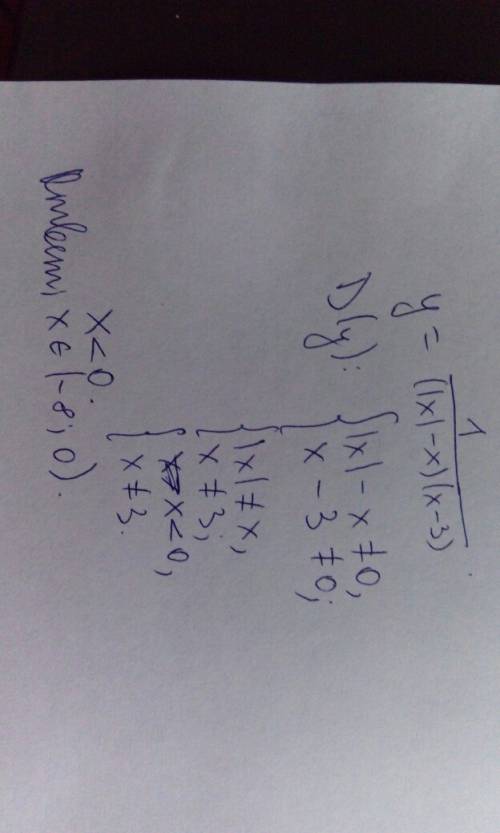 y = 1/((|x|-x)(x-3))
D(y): { |x| - x ≠ 0,
x - 3 ≠ 0;
{ |x| ≠ x,
x ≠ 3;
{ x < 0,
x ≠ 3.
x < 0.
Ответ, x ∈ (-∞; 0).